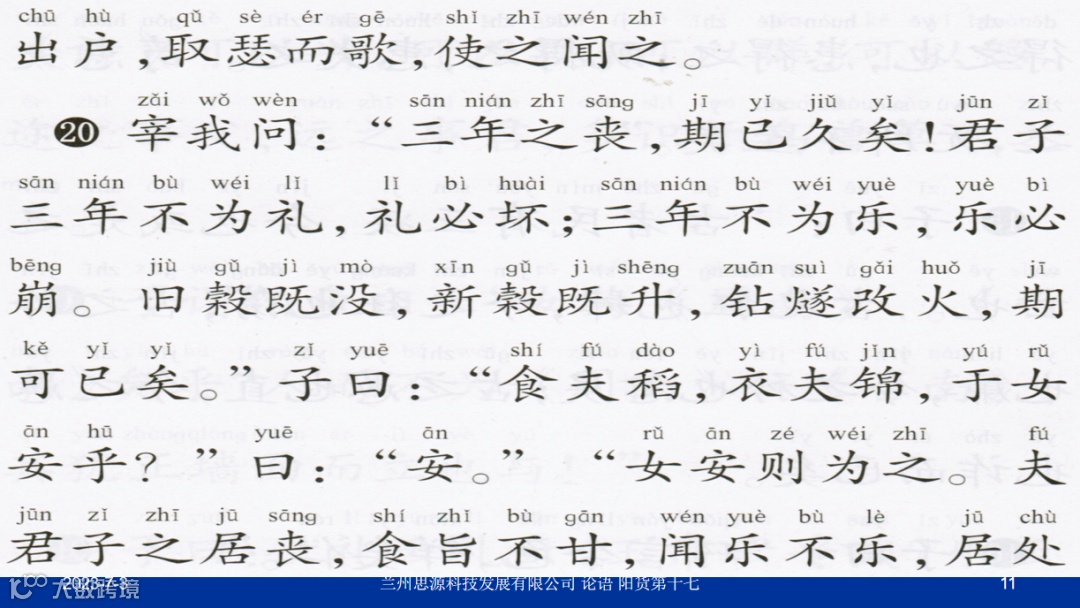 chū hù qǔ sè ér gē shǐ zhī wén zhī
出户，取瑟而歌，使之闻之。
zǎi wǒ wèn sān nián zhī sāng jī yǐ jiǔ yǐ jūn zǐ
20 宰我问：“三年之丧，期已久矣！君子
sān nián bù wéi lǐ lǐ bì huài sān nián bù wéi yuè yuè bì
三年不为礼，礼必坏；三年不为乐，乐必
bēng jiù gǔ jì mò xīn gǔ jì shēng zuān suì gǎi huǒ jī
崩。旧榖既没，新榖既升，钻燧改火，期
kě yǐ yǐ zǐ yuē shí fú dào yì fú jǐn yú rǔ
可已矣。”子曰：“食夫稻，衣夫锦，于女
ān hū yuē ān rǔ ān zé wéi zhī fú
安乎？”曰：“安。”“女安则为之。夫
jūn zǐ zhī jū sāng shí zhǐ bù gān wén yuè bù lè jū chù
君子之居丧，食旨不甘，闻乐不乐，居处
2023-7-3 兰州思源科技发展有限公司 论语 阳货第十七 11
大数跨境